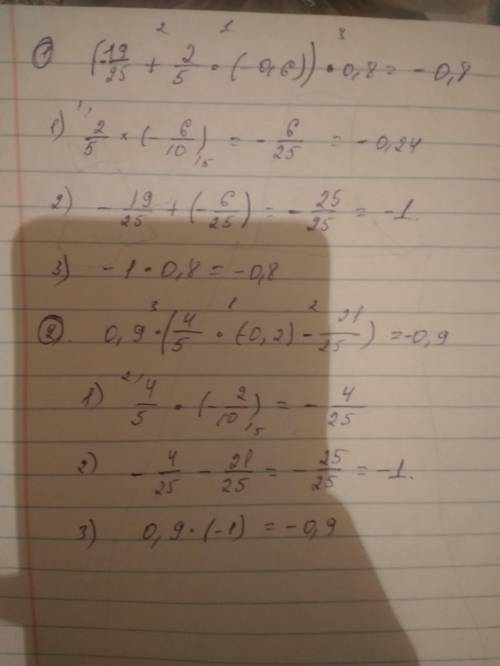 ① (-19/25 + 2/5 · (-0,6)) · 0,8 = -0,8
1) 2/5 × (-6/10) = -6/25 = -0,24
2) -19/25 + (-6/25) = -25/25 = -1.
3) -1 · 0,8 = -0,8
②. 0,9 · (4/5 · (-0,2) - 21/25) = -0,9
1) 4/5 · (-2/10) = -4/25
2) -4/25 - 21/25 = -25/25 = -1.
3) 0,9 · (-1) = -0,9